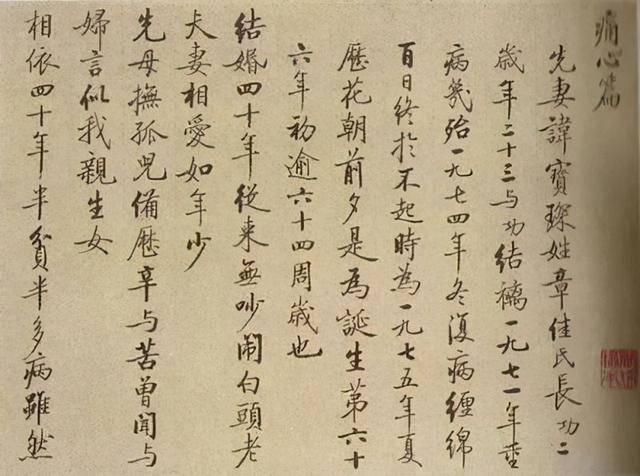 痛心篇
先妻諱寶琛姓章佳氏長功二
歲年二十三与功結褵一九七一年重
病幾殆一九七四年冬復病纏綿
百日終於不起時為一九七五年夏
歷花朝前夕是為誕生第六十
六年初逾六十四周歲也
結婚四十年從来無吵鬧白頭老
夫妻相愛如年少
先母撫孤兒備歷辛与苦曾聞与
婦言似我親生女
相依四十年半貧半多病雖然